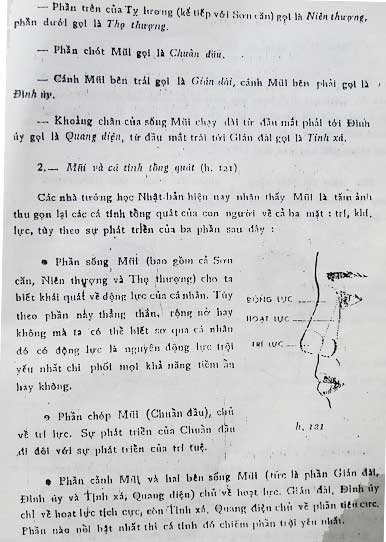 — Phần trên của Tỵ lương (kế tiếp với Sơn căn) gọi là Niên thượng,
phần dưới gọi là Thọ thượng.
— Phần chót Mũi gọi là Chuẩn đầu.
— Cánh Mũi bên trái gọi là Gián đài, cánh Mũi bên phải gọi là
Đình úy.
— Khoảng chân của sống Mũi chạy dài từ đầu mắt phải tới Đình
úy gọi là Quang diện, từ đầu mắt trái tới Gián đài gọi là Tỉnh xá.
2.— Mũi và cá tính tổng quát (h. 121)
Các nhà tướng học Nhật-bản hiện nay nhận thấy Mũi là tấm ảnh
thu gọn lại các cá tính tổng quát của con người về cả ba mặt : trí, khí,
lực, tùy theo sự phát triển của ba phần sau đây :
● Phần sống Mũi (bao gồm cả Sơn
căn, Niên thượng và Thọ thượng) cho ta
biết khái quát về động lực của cá nhân. Tùy
theo phần này thẳng thắn, rộng nở hay
không mà ta có thể biết sơ qua cá nhân
đó có động lực là nguyên động lực trội
yếu nhất chi phối mọi khả năng tiềm ẩn
hay không.
● Phần chóp Mũi (Chuẩn đầu), chủ
về trí lực. Sự phát triển của Chuẩn đầu
đi đôi với sự phát triển của trí tuệ.
ĐỘNG LỰC
HOẠT LỰC
TRÍ LỰC
h. 121
● Phần cánh Mũi và hai bên sống Mũi (tức là phần Gián đài,
Đình úy và Tịnh xá, Quang diện) chủ về hoạt lực. Gián đài, Đình úy
chỉ về hoạt lực tích cực, còn Tỉnh xá, Quang diện chủ về phần tiêu cực.
Phần nào nổi bật nhất thì cá tính đó chiếm phần trội yếu nhất.